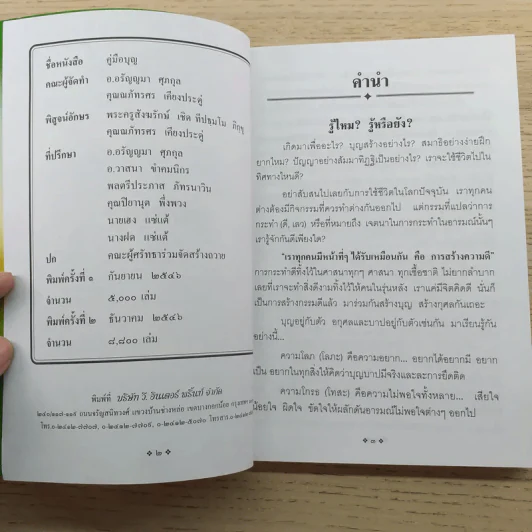 ชื่อหนังสือ คู่มือบุญ
คณะผู้จัดทำ อ.อรัญญมา ศุภกุล
คุณณภัทรศร เคียงประคู่
พิสูจน์อักษร พระครูสังฆรักษ์ เชิด ทีปธมฺโม ภิกฺขุ
คุณณภัทรศร เคียงประคู่
ที่ปรึกษา อ.อรัญญมา ศุภกุล
อ.วาสนา ขำคมนิกร
พลตรีประภาส ภัทรนาวิน
คุณปิยานุต พึ่งพวง
นายเฮง แซ่แต้
นางฝด แซ่แต้
ปก คณะผู้ศรัทธาร่วมจัดสร้างถวาย
พิมพ์ครั้งที่ ๑ กันยายน ๒๕๔๖
จำนวน ๕,๐๐๐ เล่ม
พิมพ์ครั้งที่ ๒ ธันวาคม ๒๕๔๖
จำนวน ๘,๘๐๐ เล่ม
พิมพ์ที่ บริษัท วี. อินเตอร์ พริ้นท์ จำกัด
ถนนจรัญสนิทวงศ์ แขวงบ้านช่างหล่อ เขตบางกอกน้อย กรุงเทพฯ
โทร.๐-๒๔๑๒-๗๗๐๗, ๐-๒๔๑๒-๗๗๐๙, ๐-๒๔๑๒-๕๐๗๐ โทรสาร.
๒
คำนำ
รู้ไหม? รู้หรือยัง?
เกิดมาเพื่ออะไร? บุญสร้างอย่างไร? สมาธิอย่างง่ายฝึก
ยากไหม? ปัญญาอย่างสัมมาทิฏฐิเป็นอย่างไร? เราจะใช้ชีวิตไปใน
ทิศทางไหนดี?
อย่าสับสนไปเลยกับการใช้ชีวิตในโลกปัจจุบัน เราทุกคน
ต่างต้องมีกิจกรรมที่ควรทำต่างกันออกไป แต่กรรมที่แปลว่าการ
กระทำ (ดี, เลว) หรือที่หมายถึง เจตนาในการกระทำในอารมณ์นั้นๆ
เรารู้จักกันดีเพียงใด?
"เราทุกคนมีหน้าที่ๆ ได้รับเหมือนกัน คือ การสร้างความดี"
การกระทำดีที่ทิ้งไว้ในศาสนาทุกๆ ศาสนา ทุกเชื้อชาติ ไม่ยากลำบาก
เลยที่เราจะทำสิ่งดีงามทิ้งไว้ให้คนในรุ่นหลัง เราแค่มีจิตคิดดี นั่นก็
เป็นการสร้างกรรมดีแล้ว มาร่วมกันสร้างบุญ สร้างกุศลกันเถอะ
บุญอยู่กับตัว อกุศลและบาปอยู่กับตัวเช่นกัน มาเรียนรู้กัน
อย่างนี้...
ความโลภ (โลภะ) คือความอยาก... อยากได้อยากมี อยาก
เป็น อยากในทุกสิ่งให้คิดว่าบุญบาปมีจริงและละการยึดติด
ความโกรธ (โทสะ) คือความไม่พอใจทั้งหลาย... เสียใจ
น้อยใจ ผิดใจ ขัดใจให้ผลักดันอารมณ์ไม่พอใจต่างๆ ออกไป
๓